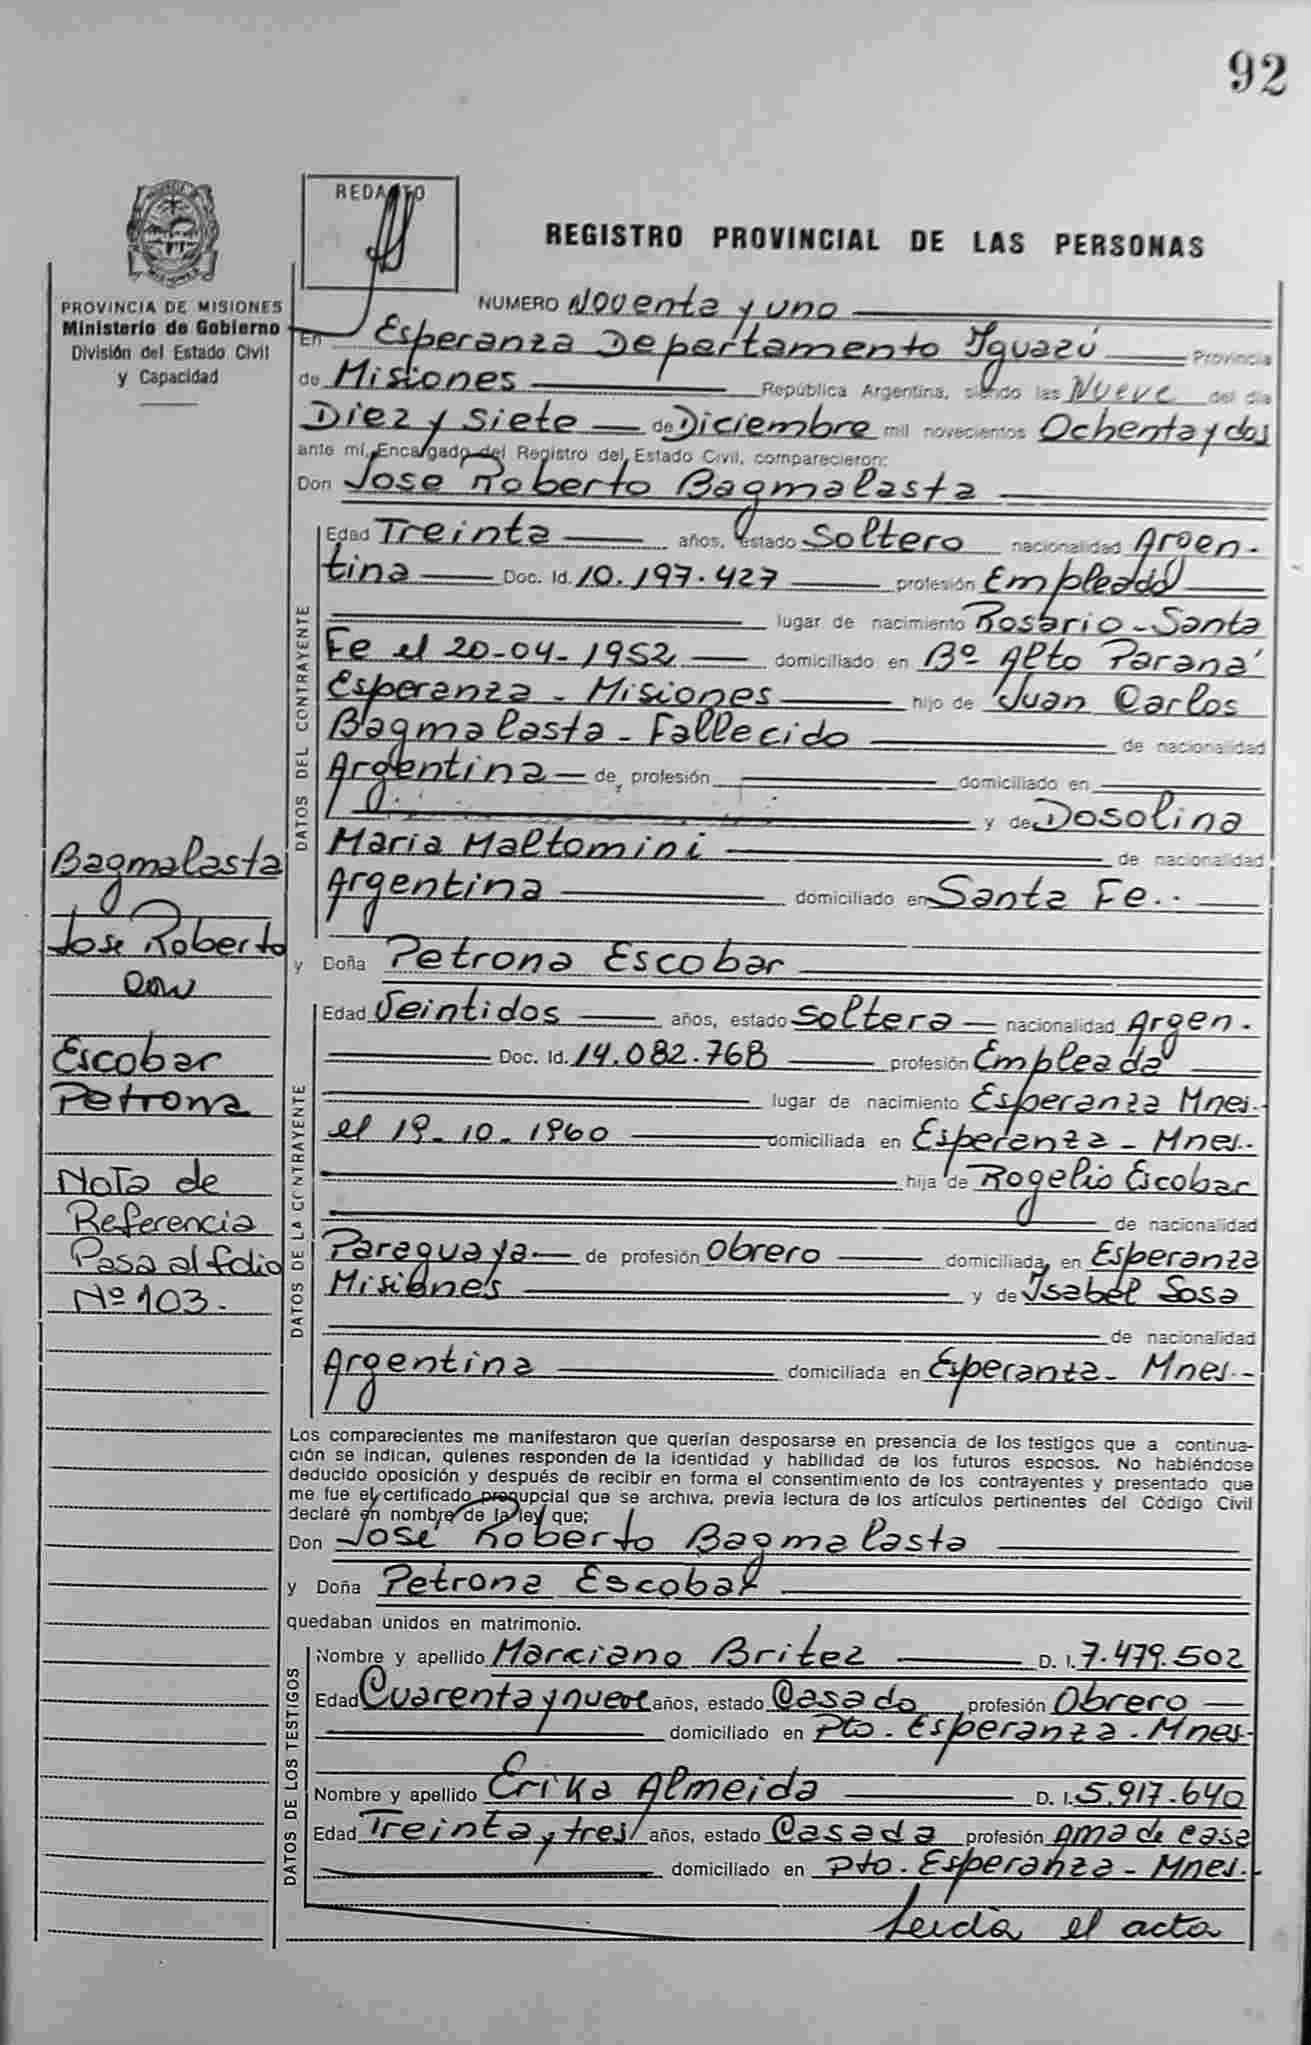 92
REDACTO
REGISTRO PROVINCIAL DE LAS PERSONAS
PROVINCIA DE MISIONES
Ministerio de Gobierno
División del Estado Civil
y Capacidad
NUMERO Noventa y uno
En Esperanza Departamento Iguazú Provincia
de Misiones República Argentina, siendo las Nueve del dia
Diez y Siete de Diciembre mil novecientos Ochenta y dos
ante mí, Encargado del Registro del Estado Civil, comparecieron:
Don Jose Roberto Bagmalasta
DATOS DEL CONTRAYENTE
Edad Treinta años, estado Soltero nacionalidad Argen-
tina Doc. Id. 10.197.427 profesión Empleado
lugar de nacimiento Rosario - Santa
Fe el 20-04-1952 domiciliado en Bº Alto Paraná
Esperanza - Misiones hijo de Juan Carlos
Bagmalasta - Fallecido de nacionalidad
Argentina de profesión domiciliado en
y de Dosolina
Maria Maltomini de nacionalidad
Argentina domiciliado en Santa Fe.
y Doña Petrona Escobar
DATOS DE LA CONTRAYENTE
Edad Veintidos años, estado Soltera nacionalidad Argen.
Doc. Id. 14.082.768 profesión Empleada
lugar de nacimiento Esperanza Mnes.
el 19-10-1960 domiciliada en Esperanza - Mnes.
hija de Rogelio Escobar
de nacionalidad
Paraguaya de profesión Obrero domiciliada en Esperanza
Misiones y de Isabel Sosa
de nacionalidad
Argentina domiciliada en Esperanza - Mnes.
Los comparecientes me manifestaron que querían desposarse en presencia de los testigos que a continua-
ción se indican, quienes responden de la identidad y habilidad de los futuros esposos. No habiéndose
deducido oposición y después de recibir en forma el consentimiento de los contrayentes y presentado que
me fue el certificado prenupcial que se archiva, previa lectura de los artículos pertinentes del Código Civil
declaré en nombre de la ley que:
Don José Roberto Bagmalasta
y Doña Petrona Escobar
quedaban unidos en matrimonio.
DATOS DE LOS TESTIGOS
Nombre y apellido Marciano Britez D. I. 7.479.502
Edad Cuarenta y nueve años, estado Casado profesión Obrero
domiciliado en Pto. Esperanza - Mnes.
Nombre y apellido Erika Almeida D. I. 5.917.640
Edad Treinta y tres años, estado Casada profesión Ama de casa
domiciliado en Pto. Esperanza - Mnes.
Leida el acta
Bagmalasta
Jose Roberto
con
Escobar
Petrona
Nota de
Referencia
Pasa al folio
Nº 103.